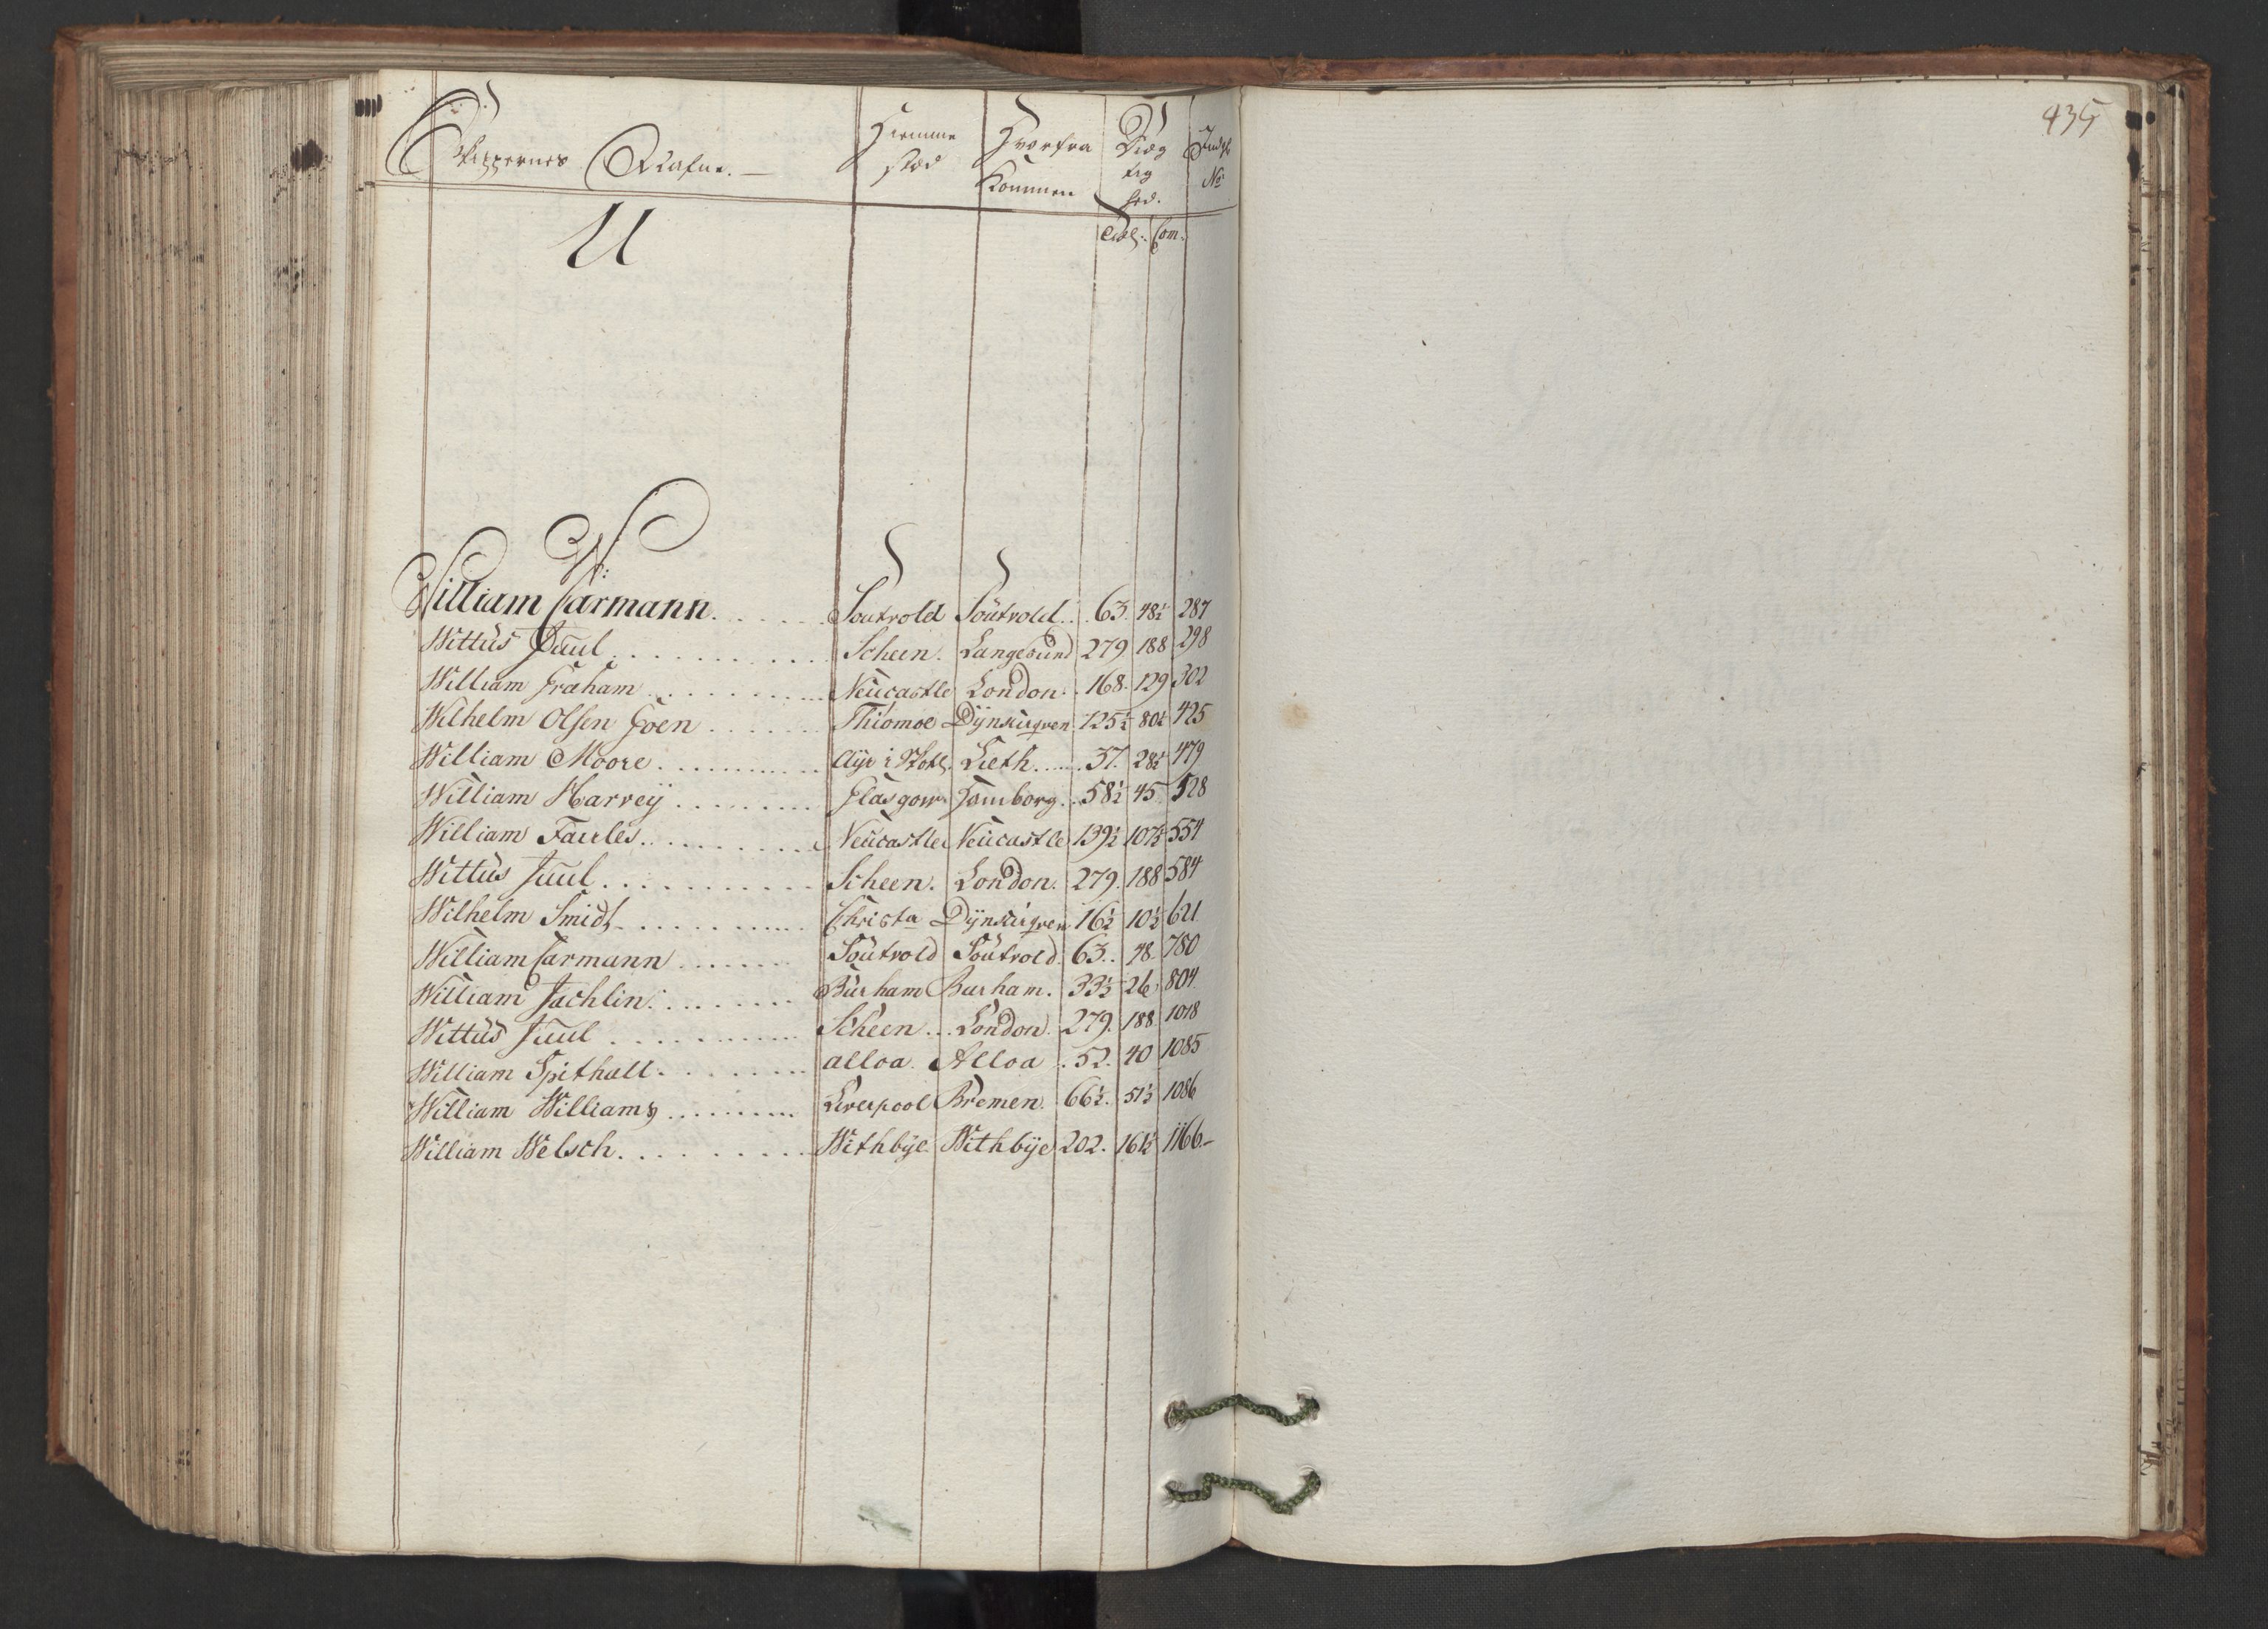 435
Skippernes Nafne. Hiemme Hvorfra Dræg Indk:
stæd Kommen tig No
hed.
Træl: Com:
U
W:
William Carmann. Soutvold Soutvold. 63. 48½ 287
Wittus Juul Scheen. Langesund 279 188 298
William Graham Neucastle London. 168. 129 302
Wilhelm Olsen Goen Thiomoe Dynkirqven 125½ 80½ 425
William Moore. Aÿr i Skotl. Lieth. 37. 28½ 479
William Harveÿ Glasgow Hamborg. 58½ 45 528
William Faules. Neucastle Neucastle 139½ 107½ 554
Wittus Juul. Scheen. London. 279. 188 584
Wilhelm Smidt Christa Dynkirqven 16½ 10½ 621
William Carmann Soutvold Soutvold. 63. 48. 780
William Jachlin. Burham Burham. 33½ 26. 804.
Wittus Juul Scheen. London. 279. 188 1018
William Spithall. alloa. Alloa. 52. 40 1085
William Williams Liverpool Bremen. 66½. 51½ 1086
William Welsch. Withbÿe Withbÿe 202. 161½ 1166